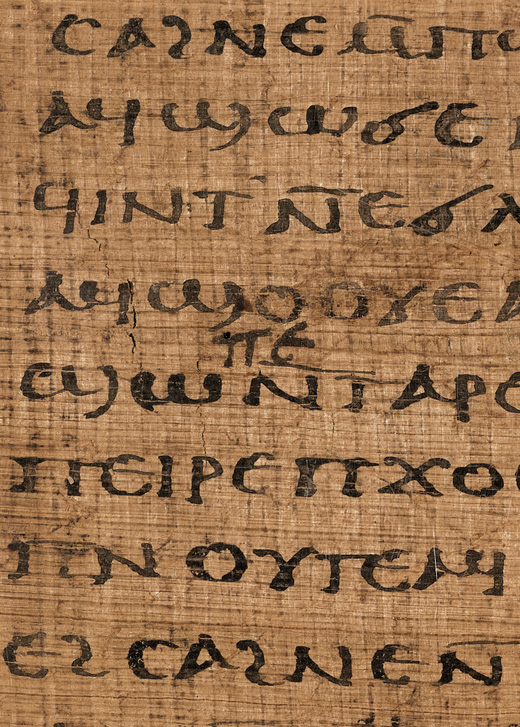 ⲥⲁϩⲛⲉⲙ̅ⲡ
ⲁϥϣⲱϭⲉ
ϥⲓⲛⲧ̅ⲛ̅ⲉϭⲁ
ⲁϥϣⲟⲟⲩⲉ
ⲡⲉ
ϣⲱⲛⲧ̅ⲁⲣⲉ
ⲡⲉⲓⲣⲉⲡϫⲟ
ⲡⲛ ⲟⲩⲧⲉⲙϥ
ⲉϩ ⲥⲁϩⲛⲉⲛ̅